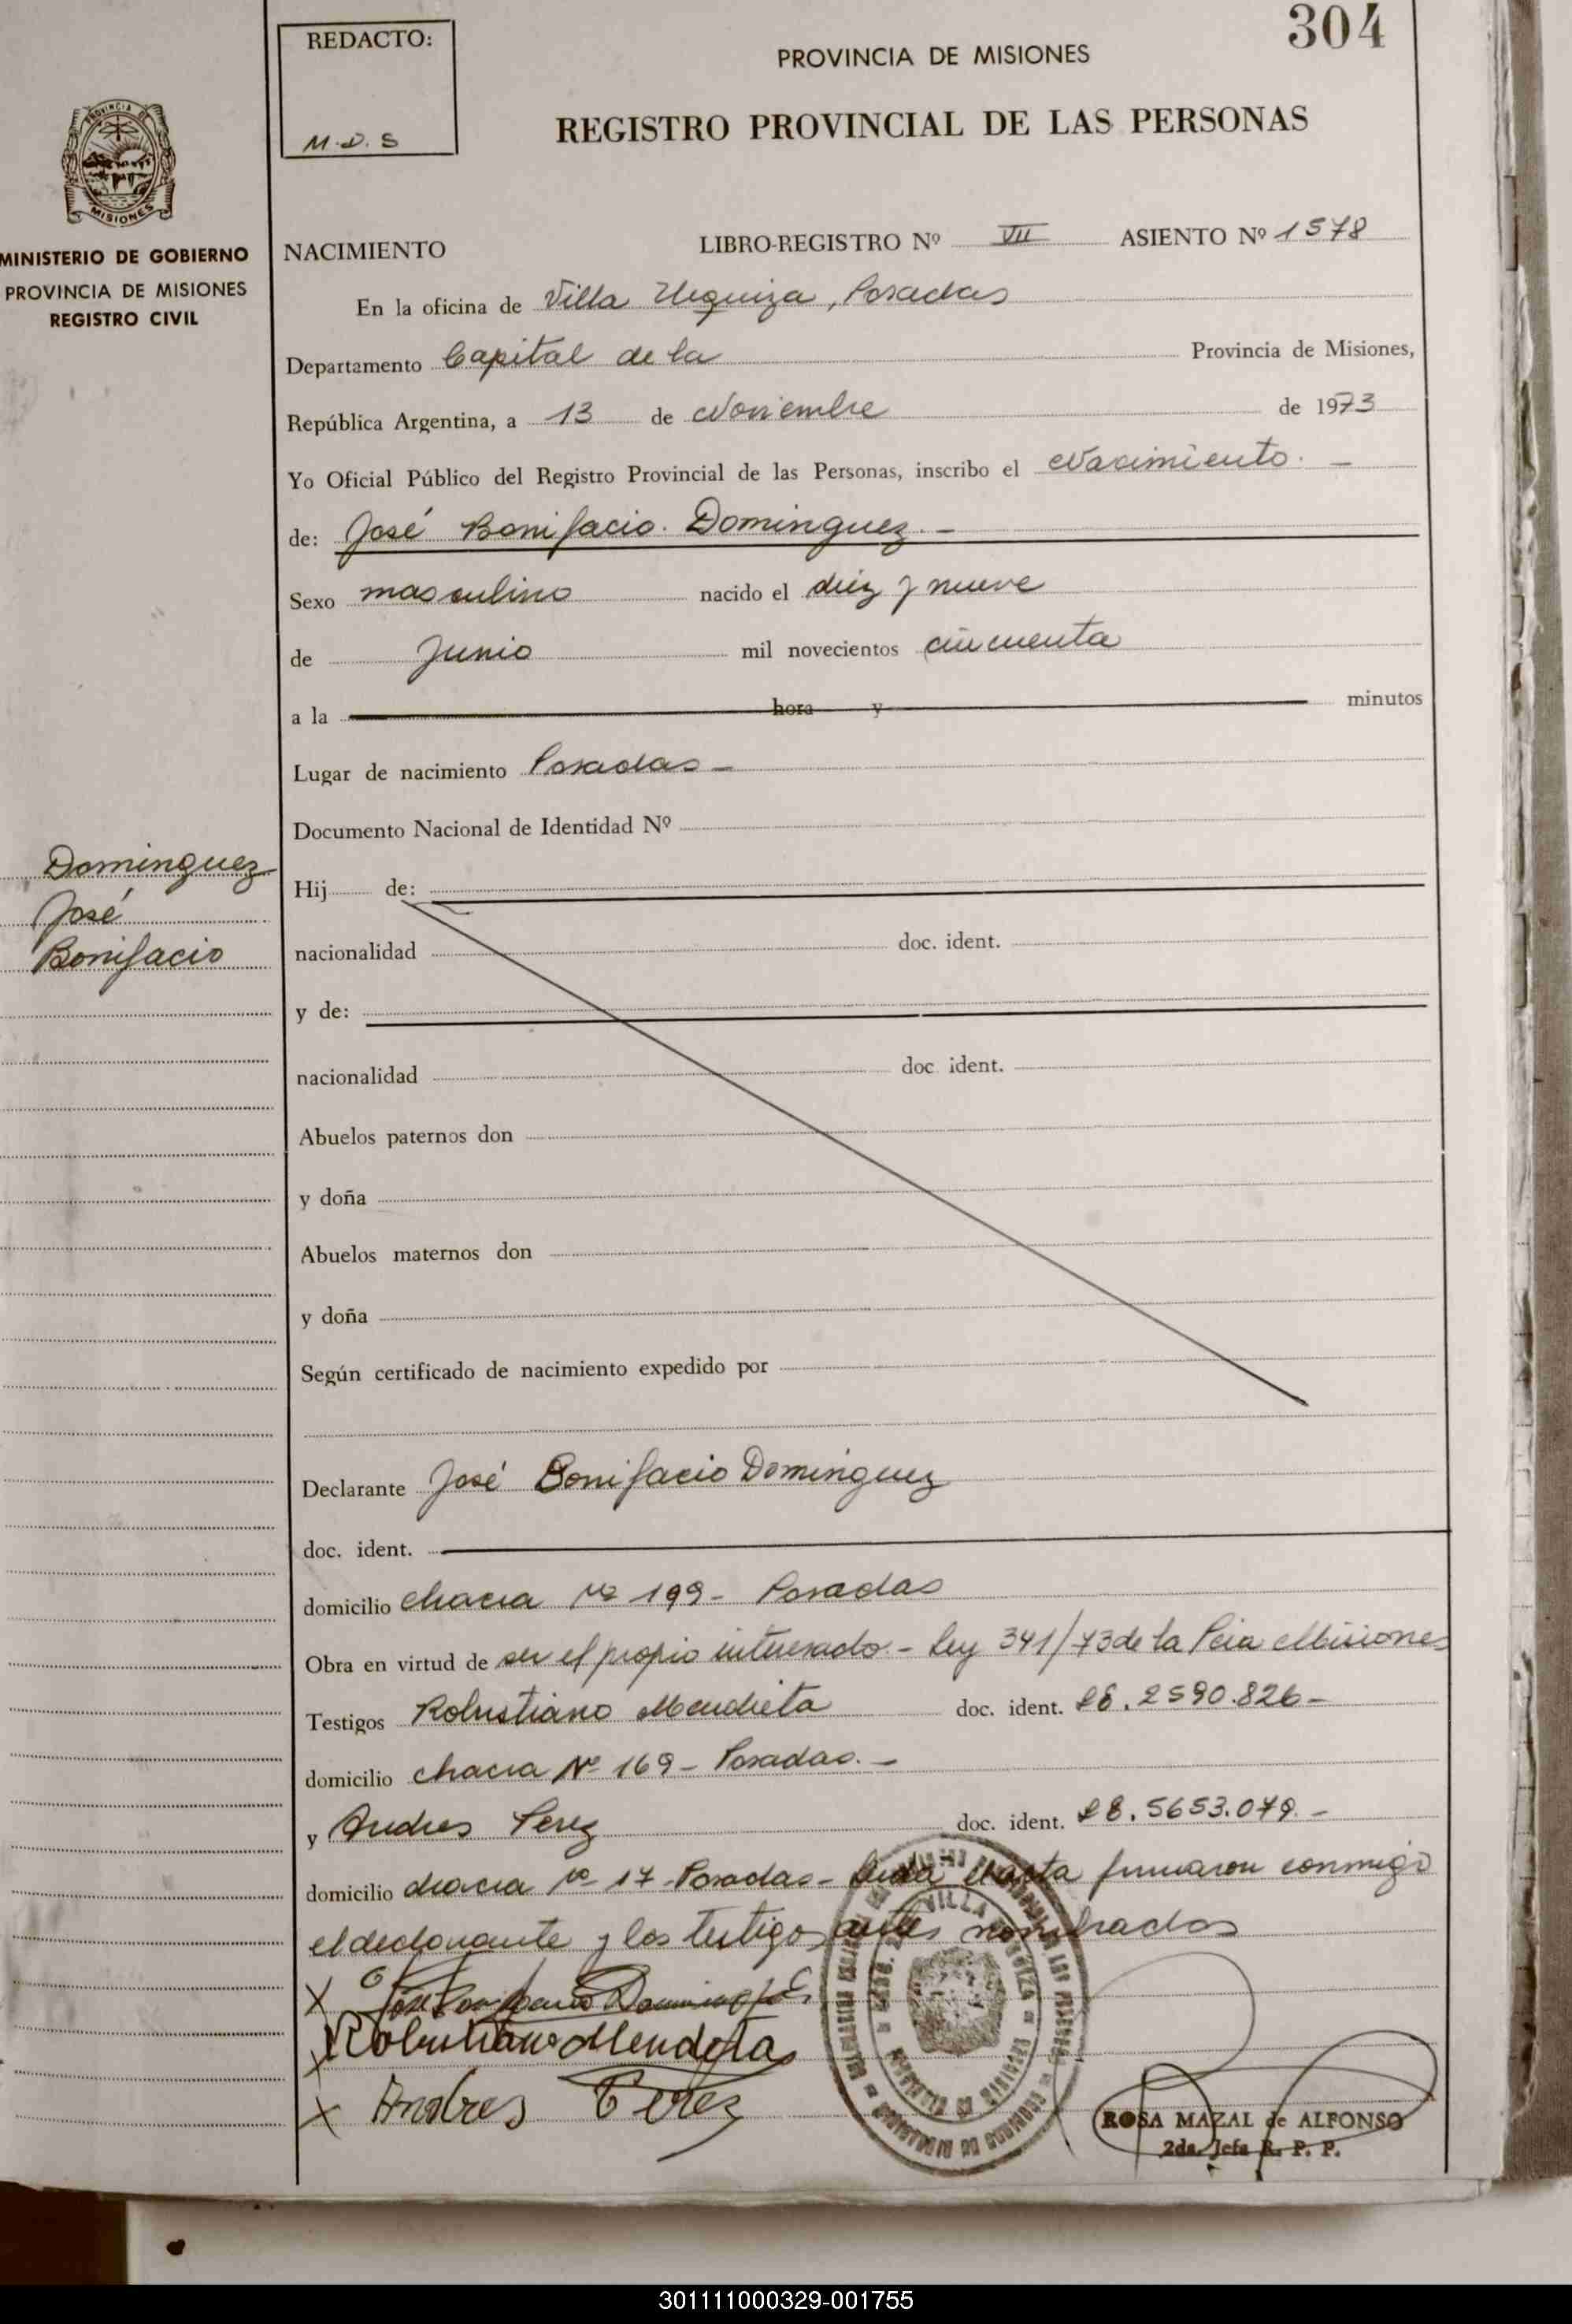 304
REDACTO:
M.D.S
PROVINCIA DE MISIONES
REGISTRO PROVINCIAL DE LAS PERSONAS
PROVINCIA DE
MISIONES
MINISTERIO DE GOBIERNO
PROVINCIA DE MISIONES
REGISTRO CIVIL
NACIMIENTO LIBRO-REGISTRO Nº VII ASIENTO Nº 1578
En la oficina de Villa Urquiza, Posadas
Departamento Capital de la Provincia de Misiones,
República Argentina, a 13 de Noviembre de 1973
Yo Oficial Público del Registro Provincial de las Personas, inscribo el Nacimiento. -
de: José Bonifacio Dominguez. -
Sexo masculino nacido el diez y nueve
de Junio mil novecientos cincuenta
a la hora y minutos
Lugar de nacimiento Posadas -
Documento Nacional de Identidad Nº
Dominguez
José
Bonifacio
Hij de:
nacionalidad doc. ident.
y de:
nacionalidad doc ident.
Abuelos paternos don
y doña
Abuelos maternos don
y doña
Según certificado de nacimiento expedido por
Declarante José Bonifacio Dominguez
doc. ident.
domicilio chacra Nº 199 - Posadas
Obra en virtud de ser el propio interesado. - Ley 341/73 de la Pcia Misiones
Testigos Robustiano Mendieta doc. ident. 2590.826 -
domicilio chacra Nº 169 - Posadas. -
y Andres Perez doc. ident. 5653.079. -
domicilio chacra Nº 17 - Posadas - Leida el acta firmaron conmigo
el declarante y los testigos antes nombrados
X José Bonifacio Dominguez
X Robustiano Mendieta
X Andres Perez
VILLA URQUIZA
ROSA MAZAL de ALFONSO
2da. Jefa R. P. P.
301111000329-001755